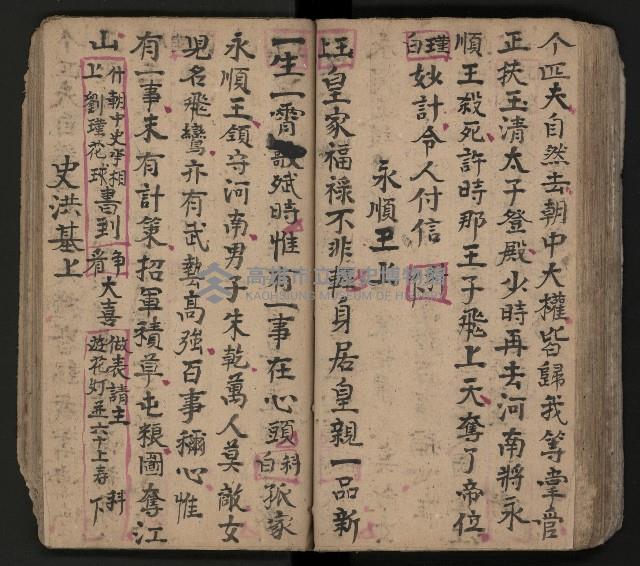 个匹夫自然去朝中大權皆歸我等掌管
正扶玉清太子登殿少時再去河南將永
順王殺死許時那王子飛上天奪了帝位
瑾白 妙計令人付信
永順王上
玉上 皇家福祿不非輕身居皇親一品新
一生一霄 賦時惟有一事在心頭 科白 孤家
永順王領守河南男子朱乾萬人莫敵女
兒名飛鸞亦有武藝高強百事稱心惟
有一事未有計策招軍積草屯粮圖奪江
山 什朝中史丞相上劉瑾花球 書到 看 大喜 做表請主遊花灯並六十上春 科下
史洪基上
高雄市立歷史博物館
KAOHSIUNG MUSEUM OF HISTORY